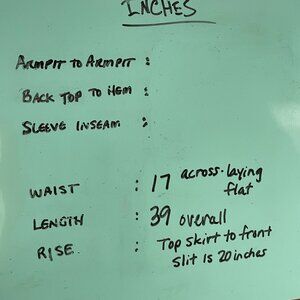 INCHES
ARMPIT TO ARMPIT :
BACK TOP TO HEM :
SLEEVE INSEAM :
WAIST : 17 across-laying flat
LENGTH : 39 overall
RISE : Top skirt to front slit is 20 inches